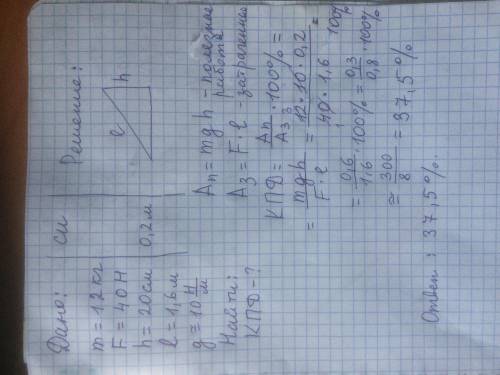 Дано:
m = 12 кг
F = 40 Н
h = 20 см
l = 1,6 м
g = 10 Н/м
Найти:
КПД - ?
СИ
0,2 м
Решение:
l
h
Aп = mgh - полезная работа
Aз = F · l затраченная
КПД = Aп/Aз · 100% =
= mgh/F · l = 12 · 10 · 0,2/40 · 1,6 100% =
3
1
= 0,6/1,6 · 100% = 0,3/0,8 · 100%
= 300/8 = 37,5%
Ответ: 37,5%.